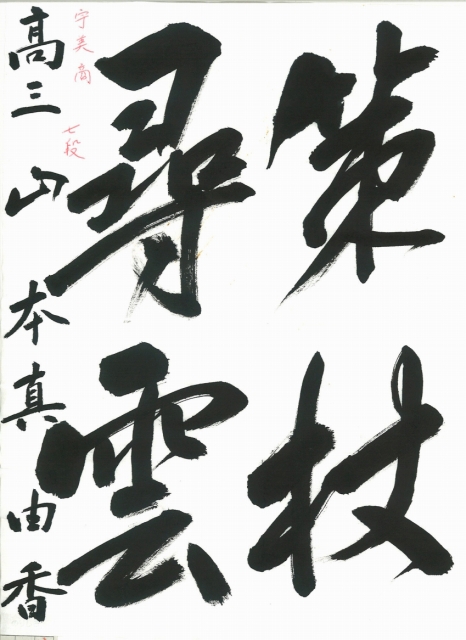 策杖
尋雲
高三 山本真由香
宇美商
七段